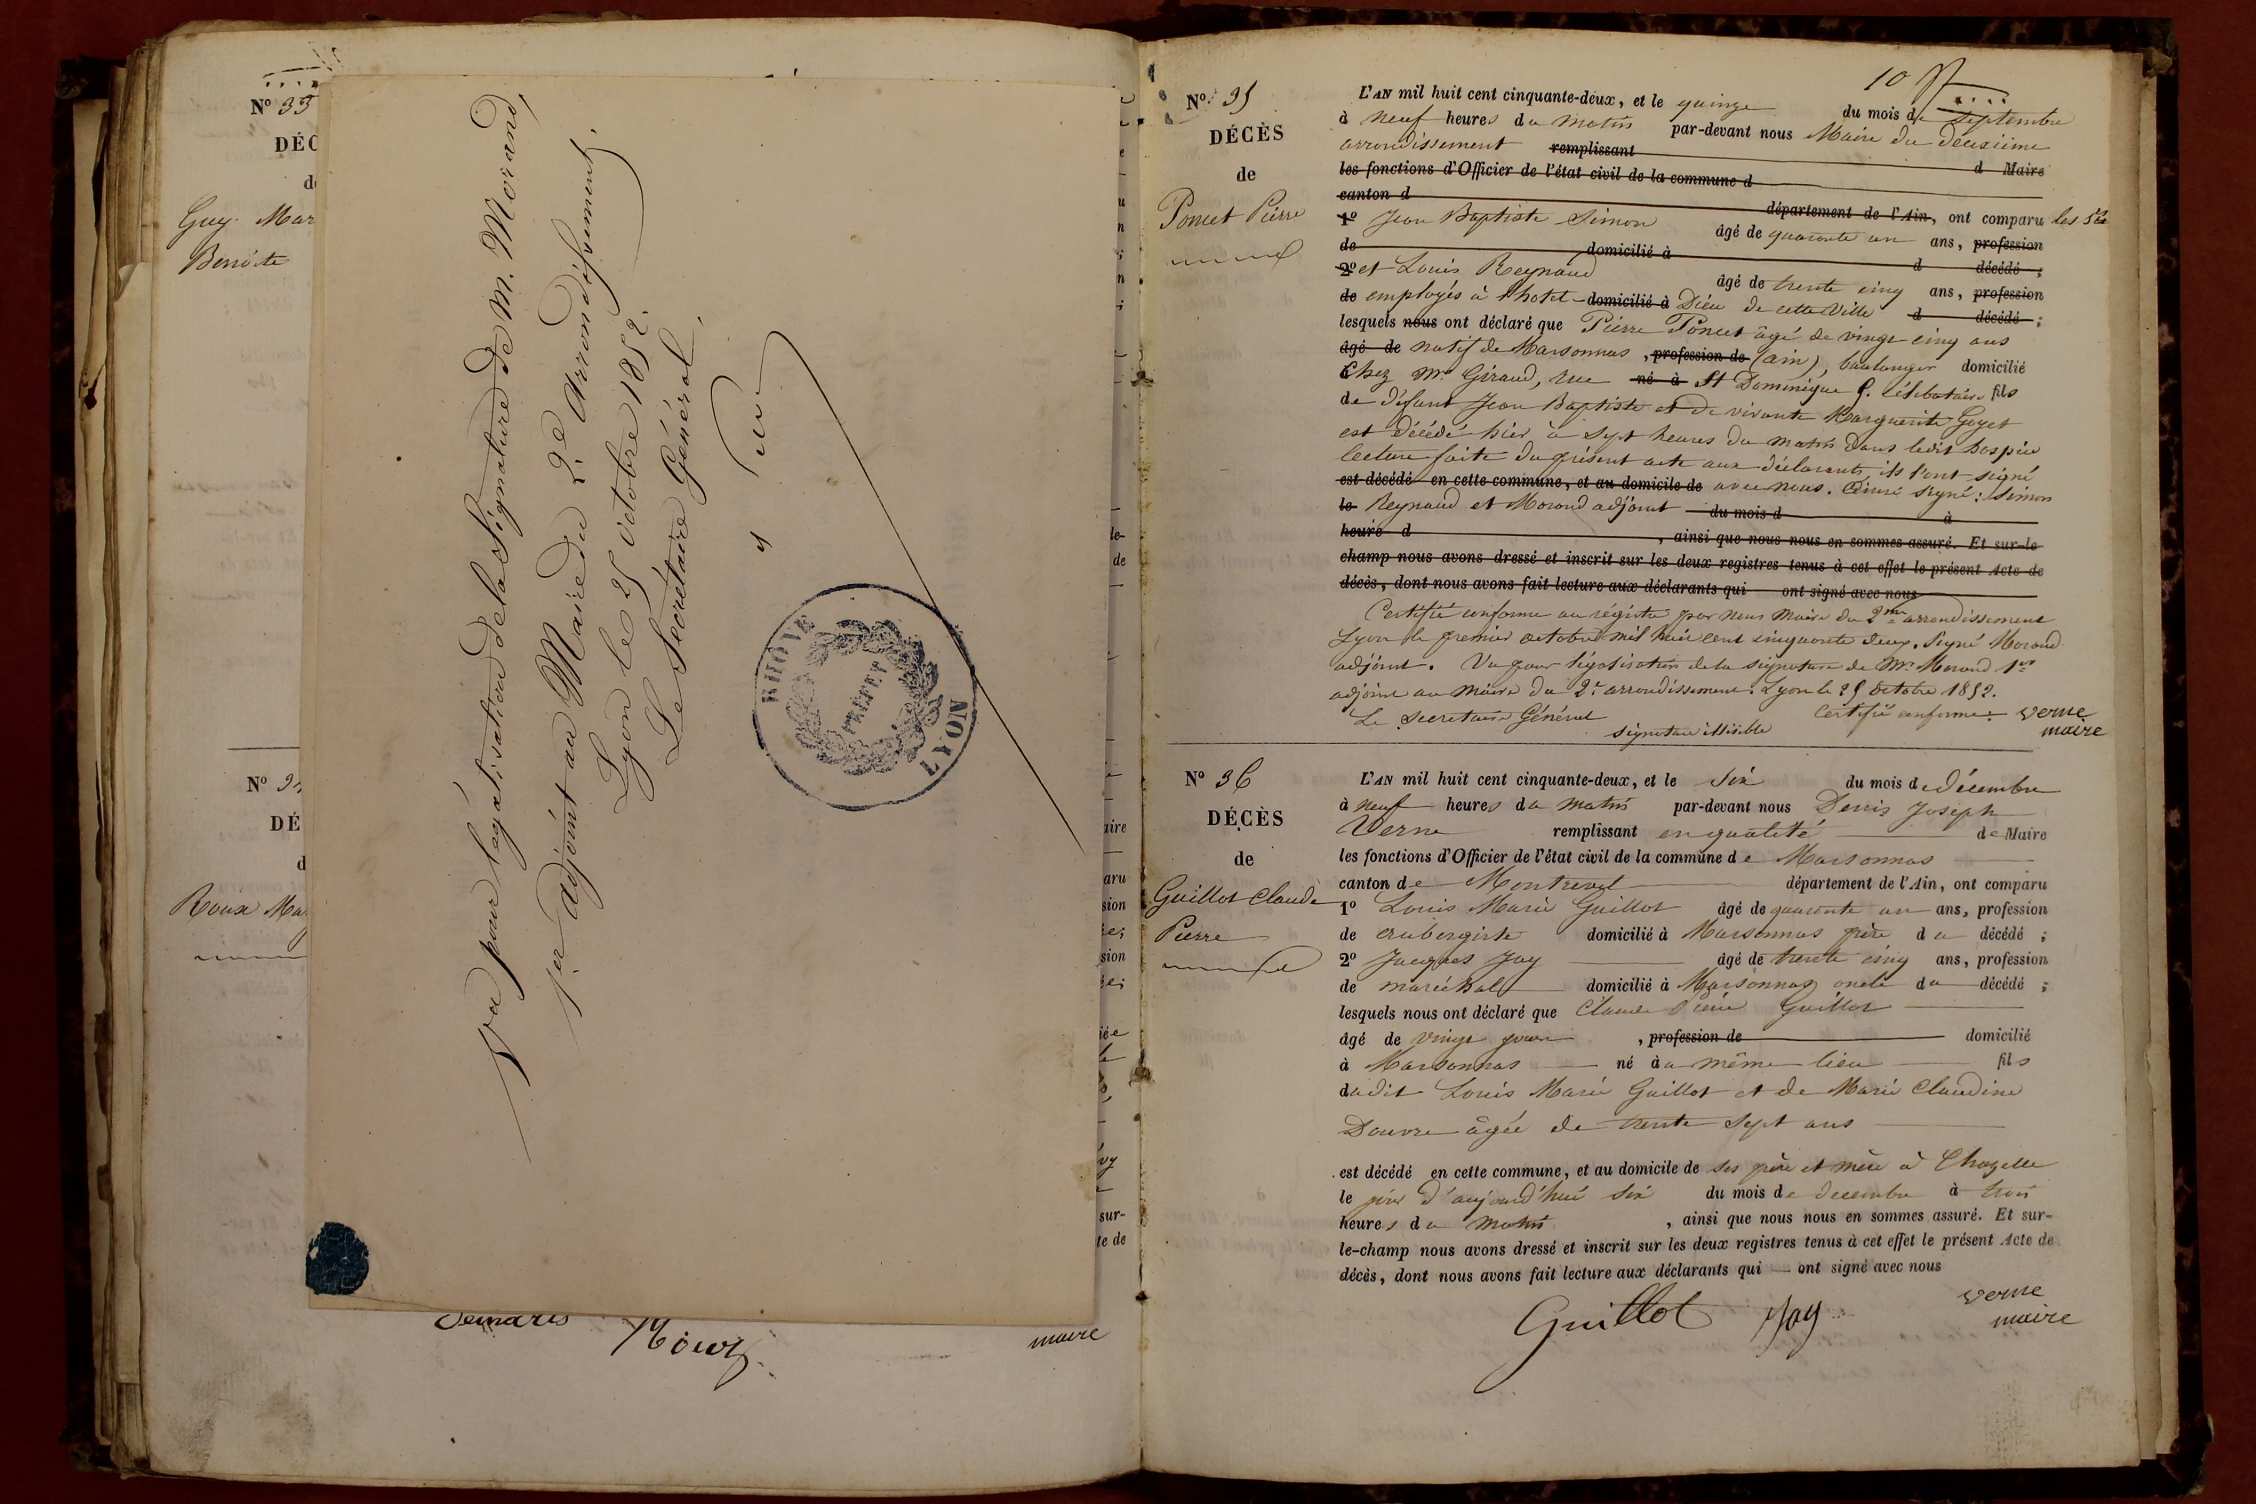 N° 33
DÉC
d
Guy Mar
Benoite
N° 34
DÉ
d
Roux Ma
Vu pour légalisation de la Signature de M. Morand,
1er adjoint au Maire du 2e Arrondissement,
Lyon le 25 octobre 1852.
Le Secrétaire Général,
RHÔNE
PRÉFET
LYON
le-
de
aire
aru
sion
sion
sur-
te de
maire
N° 35
DÉCÈS
de
Poncet Pierre
L'AN mil huit cent cinquante-deux, et le quinze du mois de Septembre
à neuf heures du matin par-devant nous Maire du deuxième
arrondissement remplissant
les fonctions d'Officier de l'état civil de la commune d d Maire
canton d département de l'Ain, ont comparu les Srs
1° Jean Baptiste Simon âgé de quarante un ans, profession
de domicilié à d décédé ;
2° et Louis Reynaud âgé de trente cinq ans, profession
de employés à l'hotel domicilié à Dieu de cette Ville d décédé ;
lesquels nous ont déclaré que Pierre Poncet âgé de vingt cinq ans
âgé de natif de Marsonnas, profession de (ain), boulanger domicilié
Chez Mr Giraud, rue né à St Dominique 9. célibataire fils
de défunt Jean Baptiste et de vivante Marguerite Goyet
est décédé hier à sept heures du matin dans ledit hospice
lecture faite du présent acte aux déclarants, ils l'ont signé
est décédé en cette commune, et au domicile de avec nous. Ainsi signé: Simon
le Reynaud et Morand adjoint du mois d à
heure d , ainsi que nous nous en sommes assuré. Et sur-le
champ nous avons dressé et inscrit sur les deux registres tenus à cet effet le présent Acte de
décès, dont nous avons fait lecture aux déclarants qui ont signé avec nous
Certifié conforme au régistre par nous Maire du 2me arrondissement
Lyon le premier octobre mil huit cent cinquante deux. Signé Morand
adjoint. Vu pour légalisation de la signature de Mr Morand 1er
adjoint au maire du 2e arrondissement. Lyon le 25 octobre 1852.
Le Secretaire Général Certifié conforme: verne
signature illisible maire
N° 36
DÉCÈS
de
Guillot Claude
Pierre
L'AN mil huit cent cinquante-deux, et le Six du mois de décembre
à neuf heures du matin par-devant nous Denis Joseph
Verne remplissant en qualité de Maire
les fonctions d'Officier de l'état civil de la commune de Marsonnas
canton de Montrevel département de l'Ain, ont comparu
1° Louis Marie Guillot âgé de quarante un ans, profession
de aubergiste domicilié à Marsonnas père du décédé ;
2° Jacques Jay âgé de trente cinq ans, profession
de maréchal domicilié à Marsonnas oncle du décédé ;
lesquels nous ont déclaré que Claude Pierre Guillot
âgé de vingt jours , profession de domicilié
à Marsonnas né au même lieu fils
dudit Louis Marie Guillot et de Marie Claudine
Douvre âgée de trente sept ans
est décédé en cette commune, et au domicile de ses père et mère à Chazelle
le jour d'aujourd'hui six du mois de decembre à trois
heures du matin , ainsi que nous nous en sommes assuré. Et sur-
le-champ nous avons dressé et inscrit sur les deux registres tenus à cet effet le présent Acte de
décès, dont nous avons fait lecture aux déclarants qui ont signé avec nous
Guillot Jay verne
maire